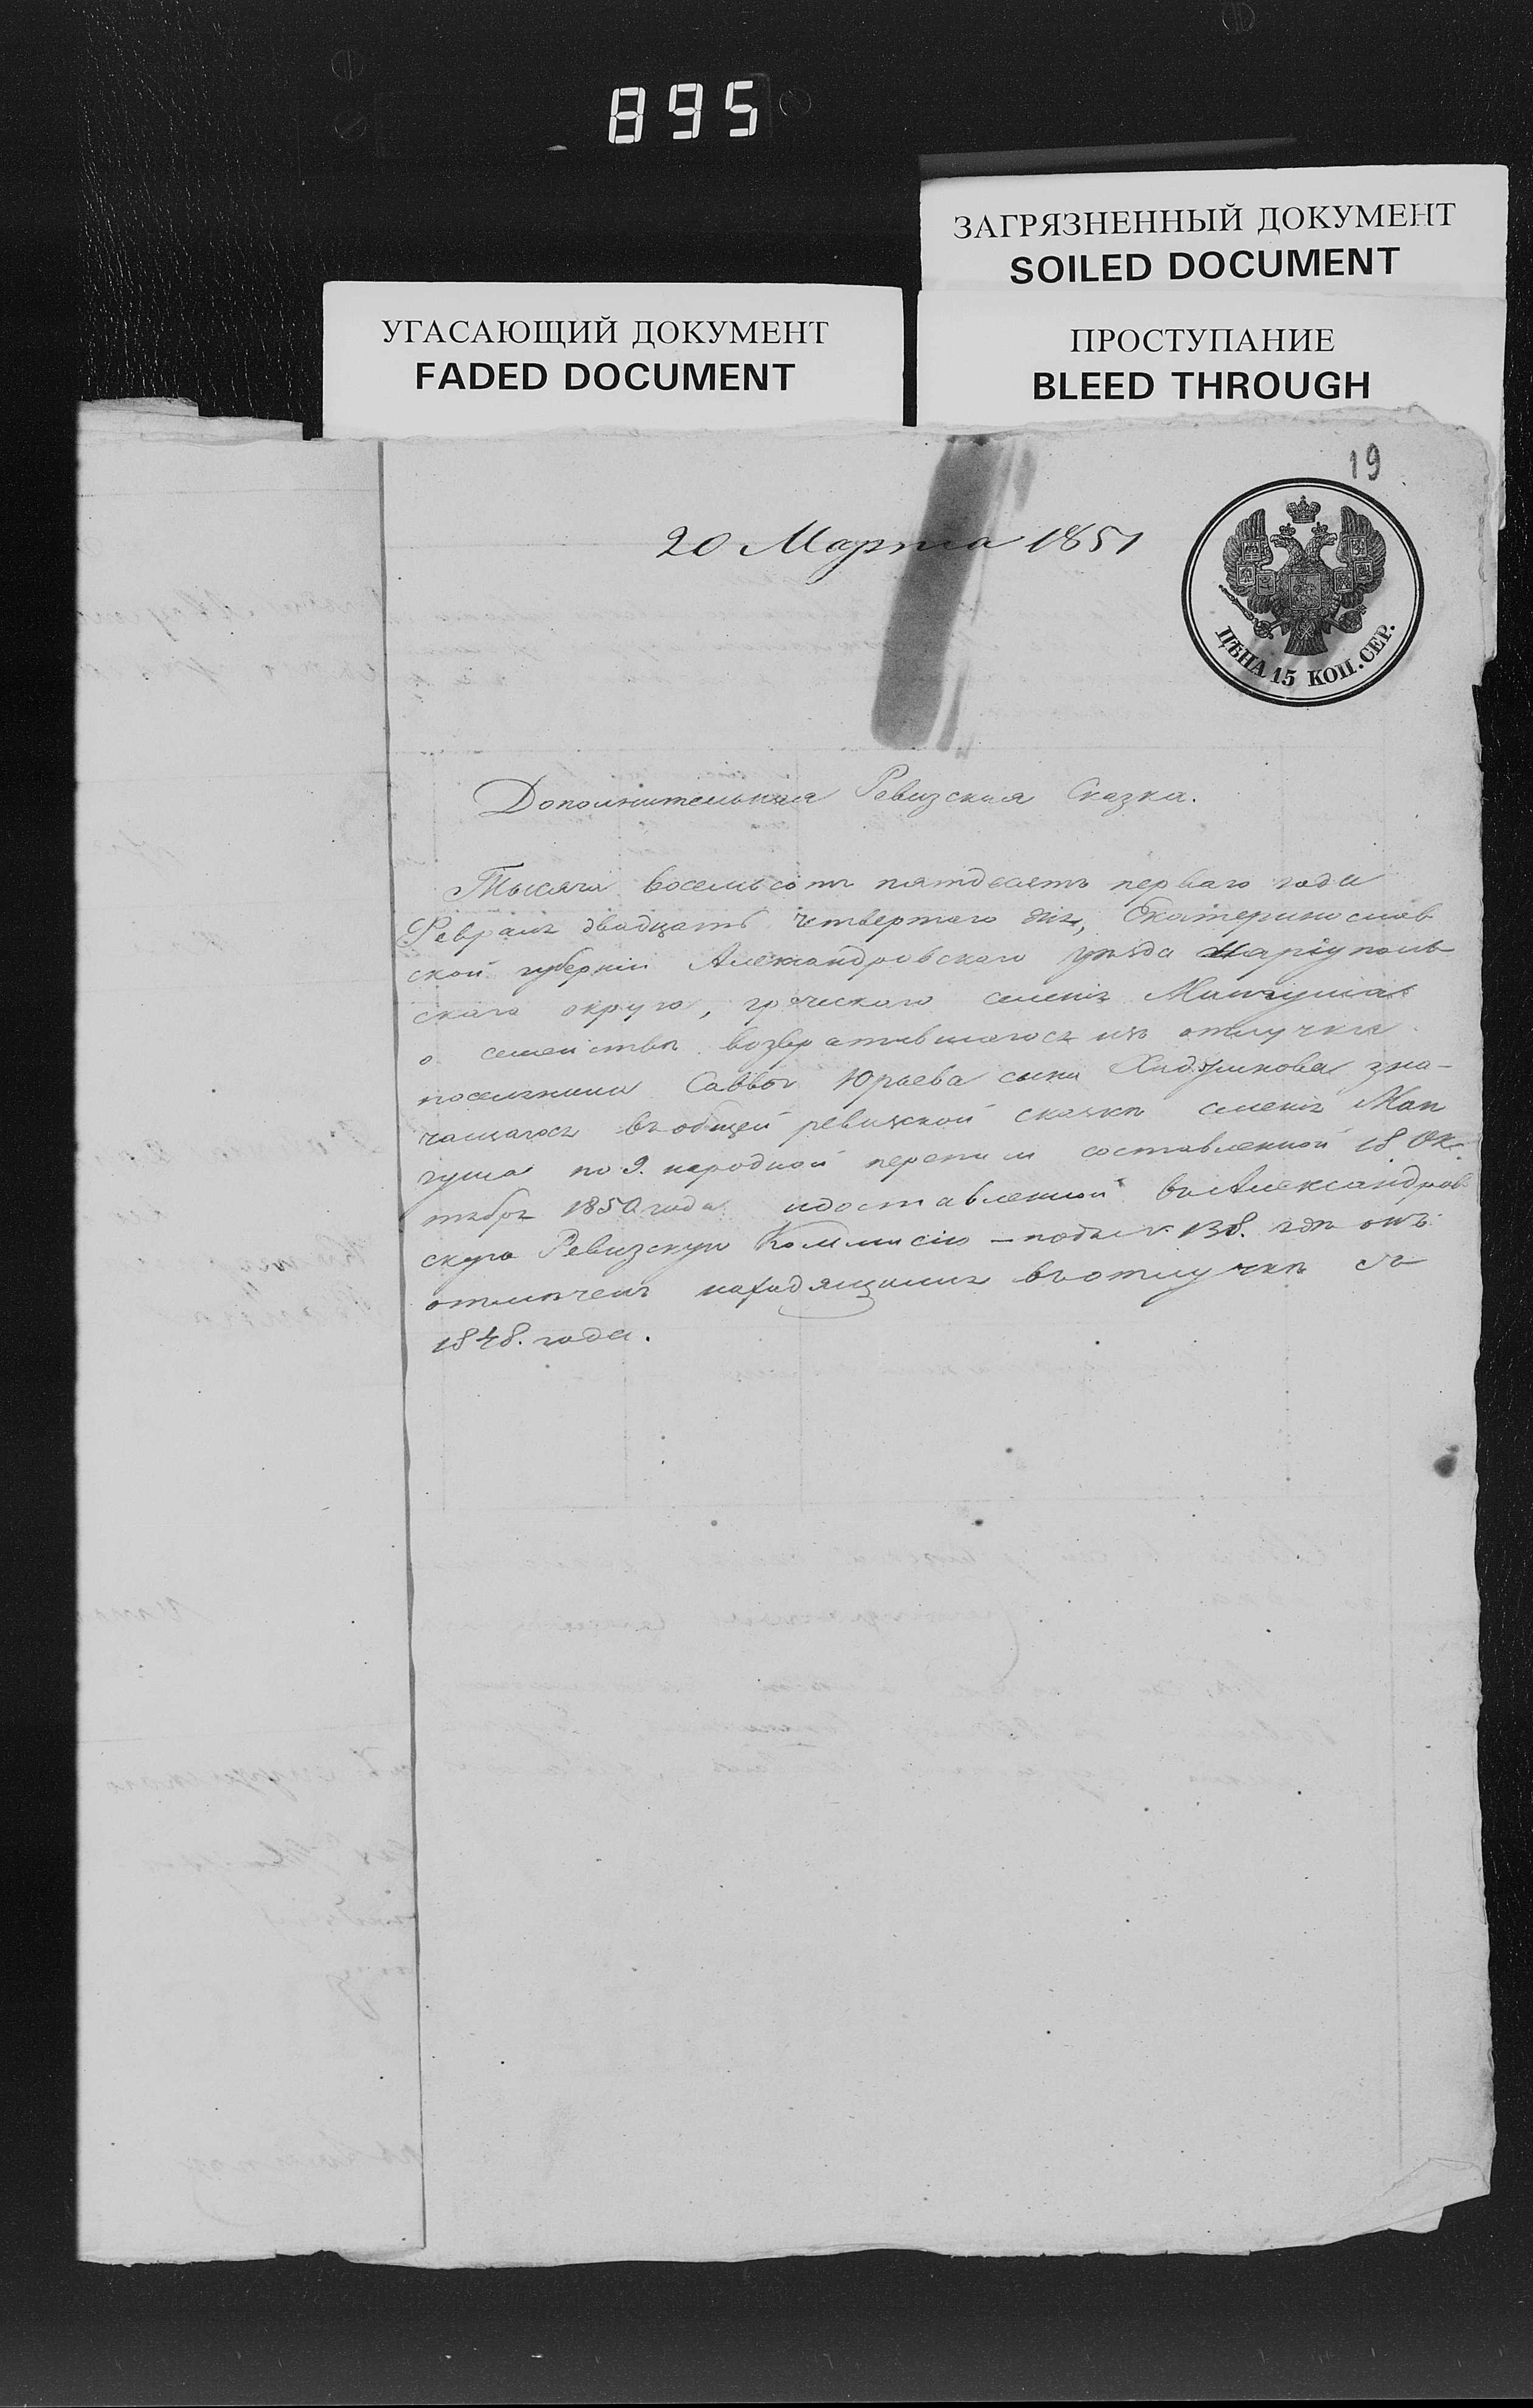 895
ЗАГРЯЗНЕННЫЙ ДОКУМЕНТ
SOILED DOCUMENT
УГАСАЮЩИЙ ДОКУМЕНТ
FADED DOCUMENT
ПРОСТУПАНИЕ
BLEED THROUGH
19
20 Марта 1851
ЦѢНА 15 КОП. СЕР.
Дополнительная Ревизская Сказка.
Тысяча восемьсотъ пятдесятъ перваго года
Февраля двадцать четвертаго дня, Екатеринослав
ской губерніи Александровскаго уѣзда Маріуполь
скаго округа, греческаго селенія Мангуша
о семействѣ возвратившагося изъ отлучки
поселянина Саввы Юрьева сына Хаджинова зна-
чащагося въ общей ревизской сказкѣ селенія Ман
гуша по 9. народной переписи составленной 18 Ок-
тября 1850 года и доставленной въ Александров
скую Ревизскую Коммисію – подъ № 138. гдѣ онъ
отмѣченъ находящимся въ отлучкѣ съ
1848. года.